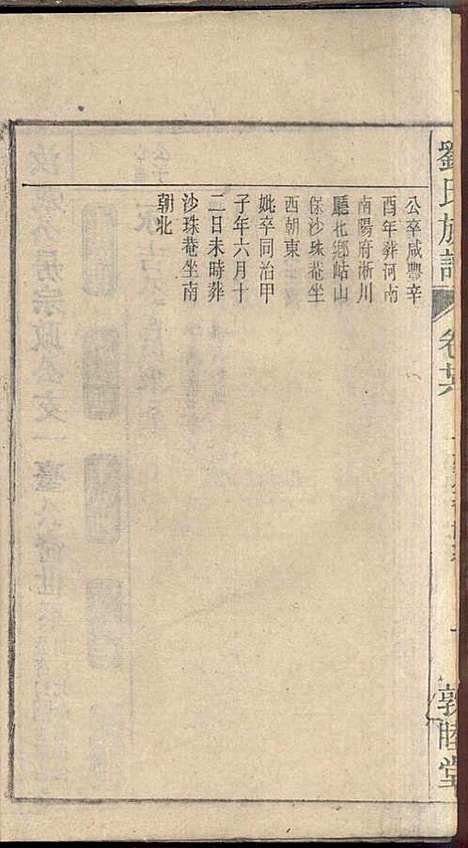 劉氏族譜
卷廿六
敦睦堂
公卒咸豐辛
酉年葬河南
南陽府淅川
廳北鄉岵山
保沙珠菴坐
西朝東
妣卒同治甲
子年六月十
二日未時葬
沙珠菴坐南
朝北